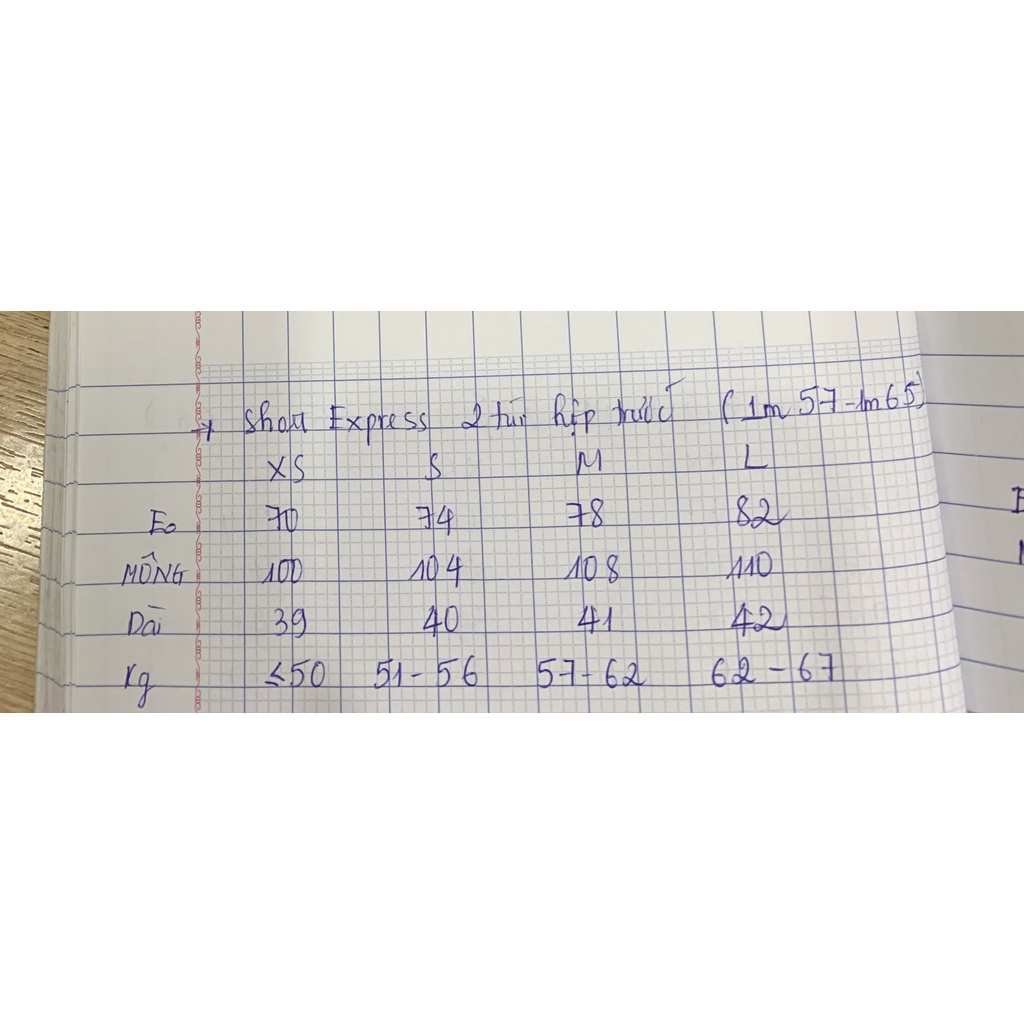 → Short Express 2 túi hộp trước (1m57-1m65)
XS S M L
Eo 70 74 78 82
MÔNG 100 104 108 110
Dài 39 40 41 42
Kg ≤50 51-56 57-62 62-67